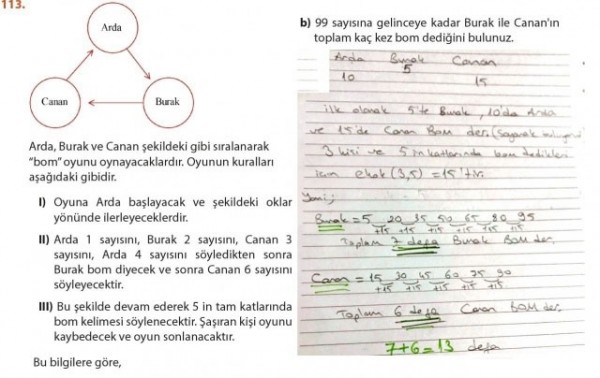 113.
Arda
Canan
Burak
Arda, Burak ve Canan şekildeki gibi sıralanarak
"bom" oyunu oynayacaklardır. Oyunun kuralları
aşağıdaki gibidir.
I) Oyuna Arda başlayacak ve şekildeki oklar
yönünde ilerleyeceklerdir.
II) Arda 1 sayısını, Burak 2 sayısını, Canan 3
sayısını, Arda 4 sayısını söyledikten sonra
Burak bom diyecek ve sonra Canan 6 sayısını
söyleyecektir.
III) Bu şekilde devam ederek 5 in tam katlarında
bom kelimesi söylenecektir. Şaşıran kişi oyunu
kaybedecek ve oyun sonlanacaktır.
Bu bilgilere göre,
b) 99 sayısına gelinceye kadar Burak ile Canan'ın
toplam kaç kez bom dediğini bulunuz.
Arda Burak Canan
10 5 15
ilk olarak 5'te Burak, 10'da Arda
ve 15'de Canan Bom der. (Sayarak
3 kişi ve 5 in katlarında bom dedikleri
için ekok (3,5) = 15'tir.
Yani;
Burak = 5 20 35 50 65 80 95
+15 +15 +15 +15 +15 +15
Toplam 7 defa Burak BOM der.
Canan = 15 30 45 60 75 90
+15 +15 +15 +15 +15
Toplam 6 defa Canan BOM der.
7+6=13 defa